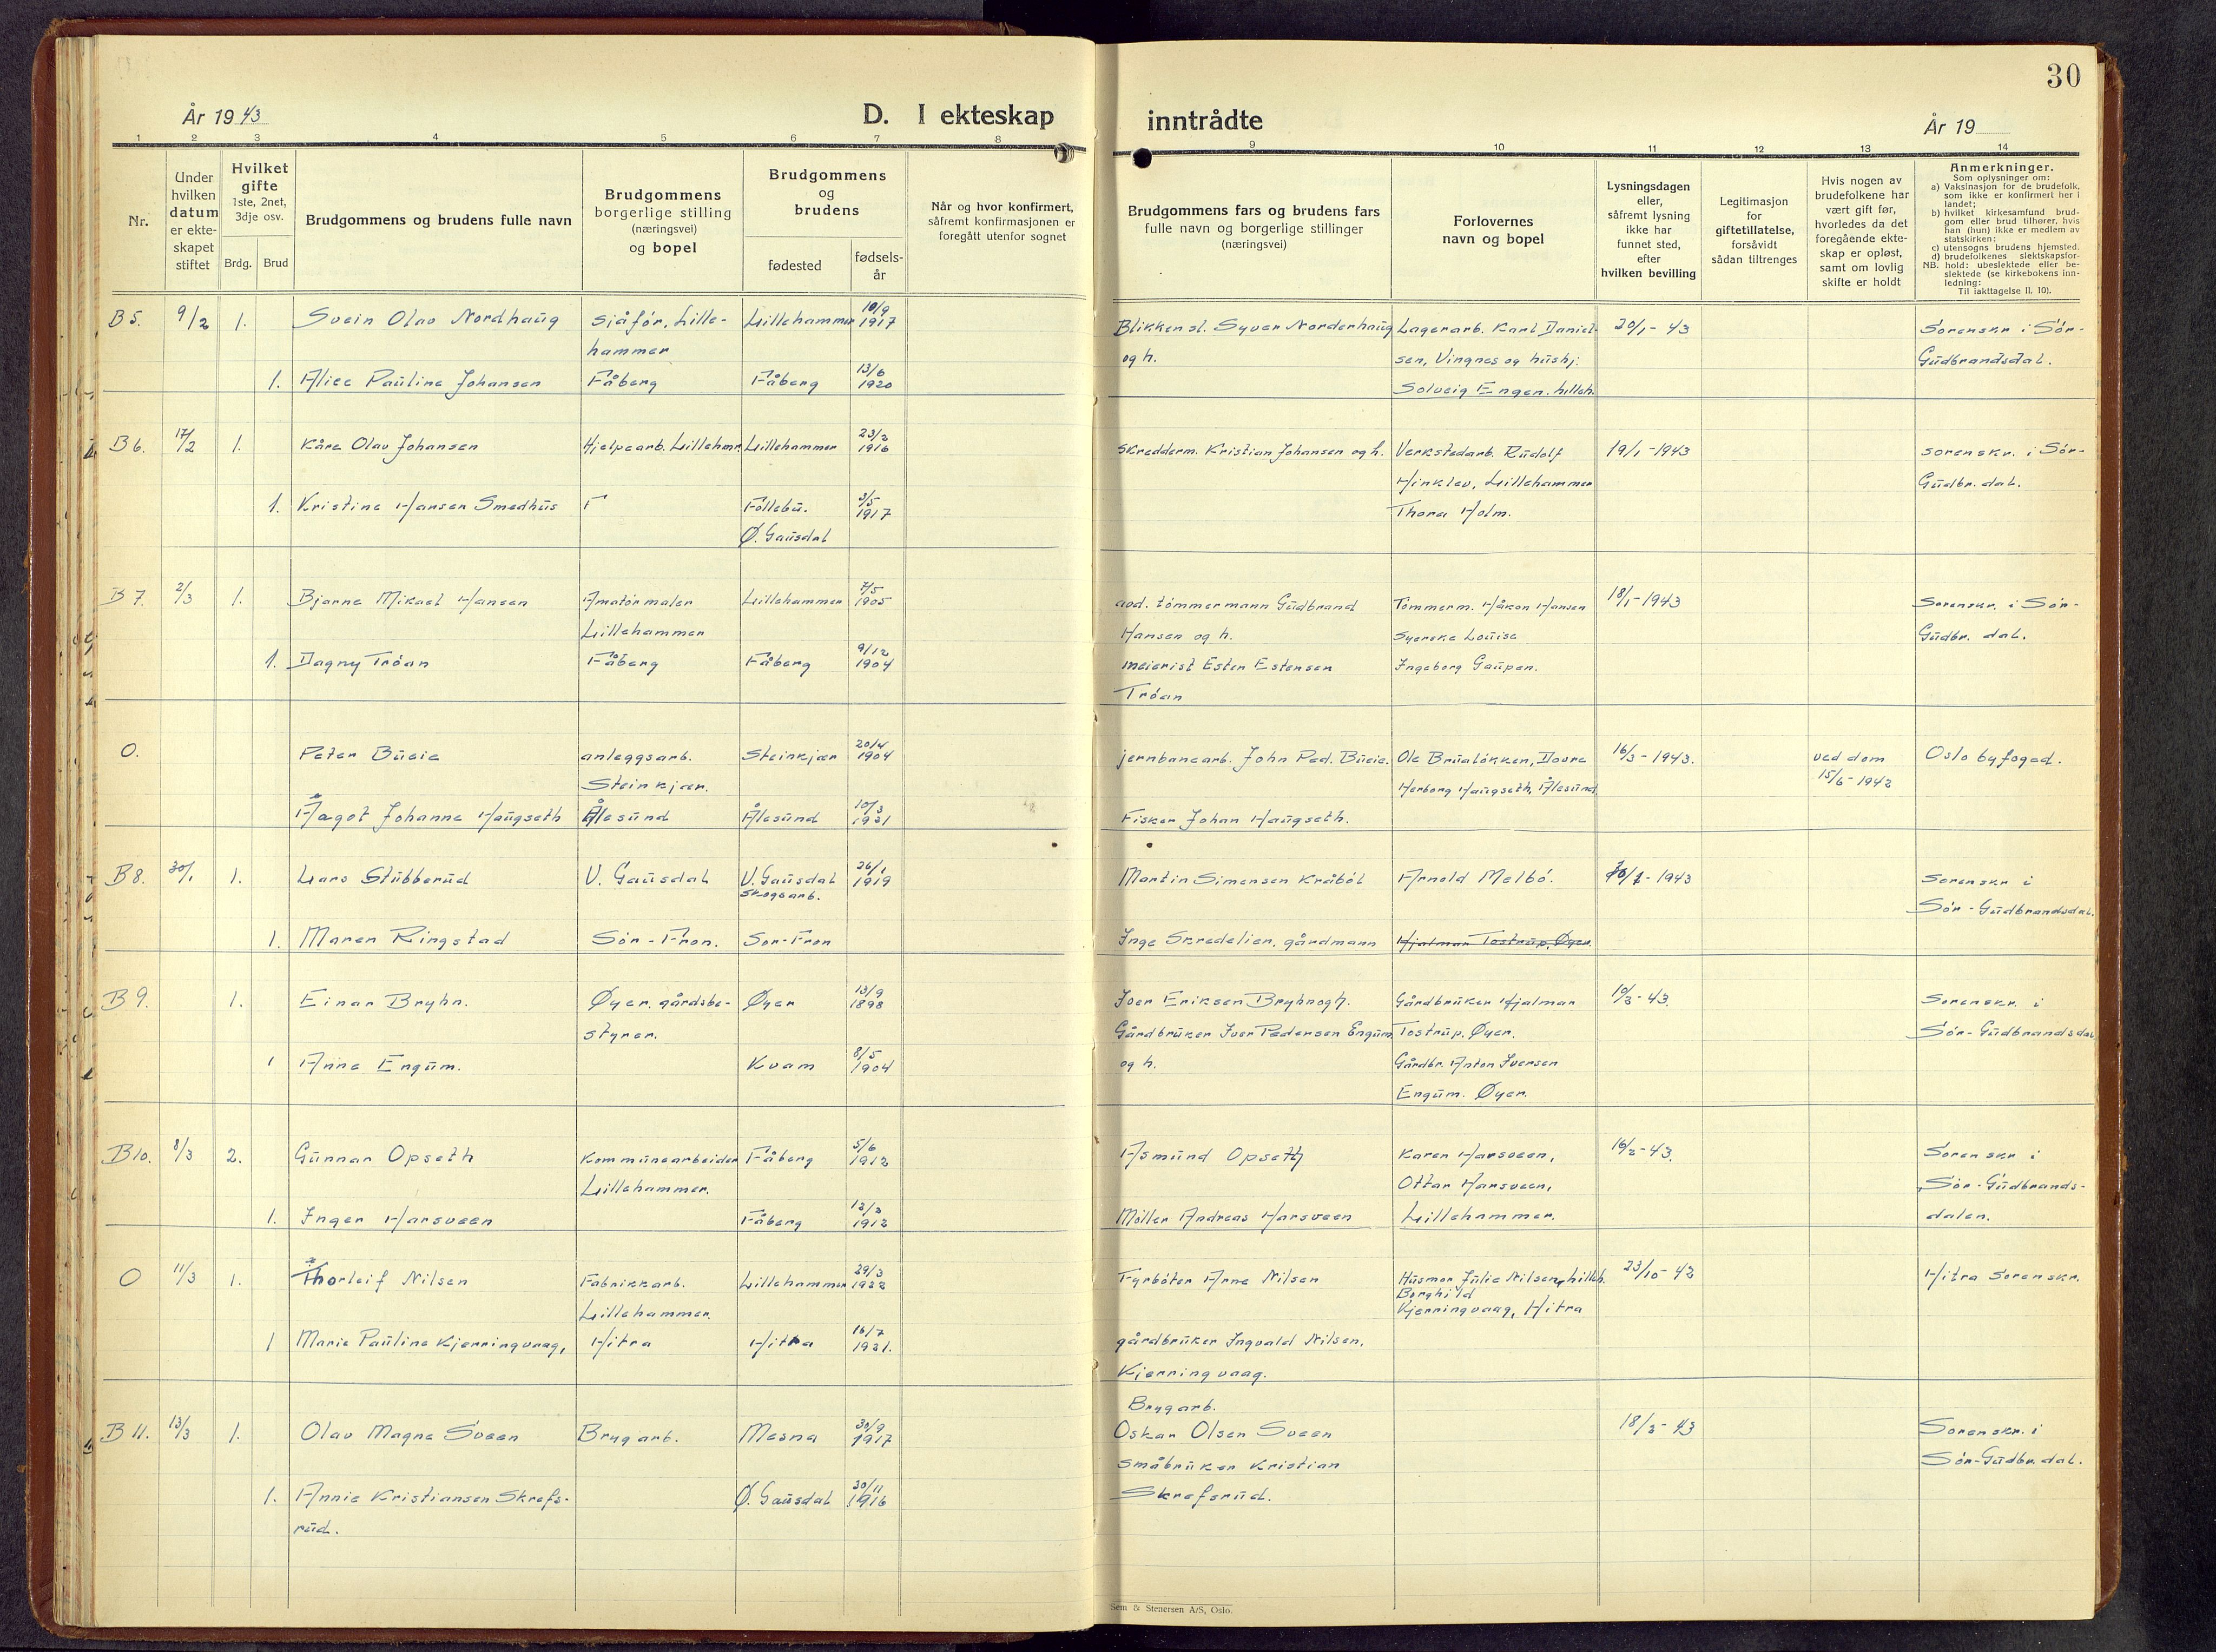 30
År 1943
D. I ekteskap inntrådte
År 19
1 2 3 4 5 6 7 8 9 10 11 12 13 14
Nr.
Under hvilken datum er ekteskapet stiftet
Hvilket gifte 1ste, 2net, 3dje osv.
Brdg. Brud
Brudgommens og brudens fulle navn
Brudgommens borgerlige stilling (næringsvei) og bopel
Brudgommens og brudens
fødested
fødselsår
Når og hvor konfirmert, såfremt konfirmasjonen er foregått utenfor sognet
Brudgommens fars og brudens fars fulle navn og borgerlige stillinger (næringsvei)
Forlovernes navn og bopel
Lysningsdagen eller, såfremt lysning ikke har funnet sted, efter hvilken bevilling
Legitimasjon for giftetillatelse, forsåvidt sådan tiltrenges
Hvis nogen av brudefolkene har vært gift før, hvorledes da det foregående ekteskap er opløst, samt om lovlig skifte er holdt
Anmerkninger.
Som oplysninger om:
a) Vaksinasjon for de brudefolk, som ikke er konfirmert her i landet;
b) hvilket kirkesamfund brudgom eller brud tilhører, hvis han (hun) ikke er medlem av statskirken;
c) utensogns brudens hjemsted.
d) brudefolkenes slektskapsforhold: ubeslektede eller beslektede (se kirkebokens innledning:
NB.
Til iakttagelse II. 10).
B 5. 9/2 1. Svein Olav Nordhaug sjåfør, Lille- Lillehammer 10/9 1917 Blikkensl. Syver Norderhaug Lagerarb. Karl Daniel- 20/1 - 43 Sorenskr i Sør-
hammer og h. sen, Vingnes og hushj: Gudbrandsdal.
1. Alice Pauline Johansen Fåberg Fåberg 13/6 1920 Solveig Engen. Lilleh.
B 6. 17/2 1. Kåre Olav Johansen Hjelpearb. Lilleham. Lillehammer 23/2 1916 Skredderm. Kristian Johansen og h. Verkstedarb. Rudolf 19/1 - 1943 Sorenskr. i Sør-
Hinklev, Lillehammer Gudbr. dal.
1. Kristine Hansen Smedhus F Follebu. 3/5 1917 Thora Holm.
Ø. Gausdal
B 7. 2/3 1. Bjarne Mikael Hansen Amatørmaler Lillehammer 7/5 1905 avd. tømmermann Gudbrand Tømmerm. Håkon Hansen 18/1 - 1943 Sorenskr. i Sør-
Lillehammer Hansen og h. Syerske Louise Gudbr. dal.
1. Dagny Trøan Fåberg Fåberg 9/12 1904 meierist Esten Estensen Ingeborg Gaupen.
Trøan
O. Peter Bueie anleggsarb. Steinkjær 20/4 1904 jernbanearb. John Ped. Bueie. Ole Brualøkken, Dovre 16/3 - 1943. ved dom Oslo byfoged.
Steinkjær. Herborg Haugseth, Ålesund 15/6 - 1942
Aagot Johanne Haugseth Ålesund Ålesund 10/3 1921 Fisker Johan Haugseth.
B 8. 30/1 1. Lars Stubberud V. Gausdal V. Gausdal 26/1 1919 Martin Simensen Kråbøl Arnold Melbø. - 1943 Sorenskr i
Skogsarb. Sør-Gudbrandsdal.
1. Maren Ringstad Sør-Fron. Sør-Fron Inge Skredelien, gårdmann Hjalmar Tostrup, Øyer.
B 9. 1. Einar Bryhn. Øyer. gårdsbe- Øyer 13/9 1898 Iver Eriksen Bryhn og h. Gårdbruker Hjalmar 10/3 - 43. Sorenskr. i
styrer. Gårdbruker Iver Pedersen Engum Tostrup. Øyer. Sør-Gudbrandsdal
1 Anne Engum. Kvam 8/5 1904 og h. Gårdbr. Anton Iversen
Engum. Øyer.
B 10. 8/3 2. Gunnar Opseth Kommunearbeider Fåberg 5/6 1912 Asmund Opseth Karen Harsveen, 16/2 - 43. Sorenskr i
Lillehammer. Ottar Harsveen, Sør-Gudbrands-
1. Inger Harsveen Fåberg 12/3 1912 Møller Andreas Harsveen Lillehammer. dalen.
O 11/3 1. Thorleif Nilsen Fabrikkarb. Lillehammer 29/3 1922 Fyrbøter Arne Nilsen Husmor Julie Nilsen, Lilleh. 23/10 - 42 Hitra Sorenskr.
Lillehammer. Borghild Kjerringvaag, Hitra
1 Marie Pauline Kjerringvaag, Hitra Hitra 16/7 1921. gårdbruker Ingvald Nilsen,
Kjerringvaag.
B 11. 13/3 1. Olav Magne Sveen Brygarb. Mesna 30/9 1917 Brygarb. Oskar Olsen Sveen 18/2 - 43 Sorenskr. i
småbruker Kristian Sør-Gudbr. dal.
1. Annie Kristiansen Skrefs- Ø. Gausdal 30/11 1916 Skrefsrud.
rud.
Sem & Stenersen A/S, Oslo.